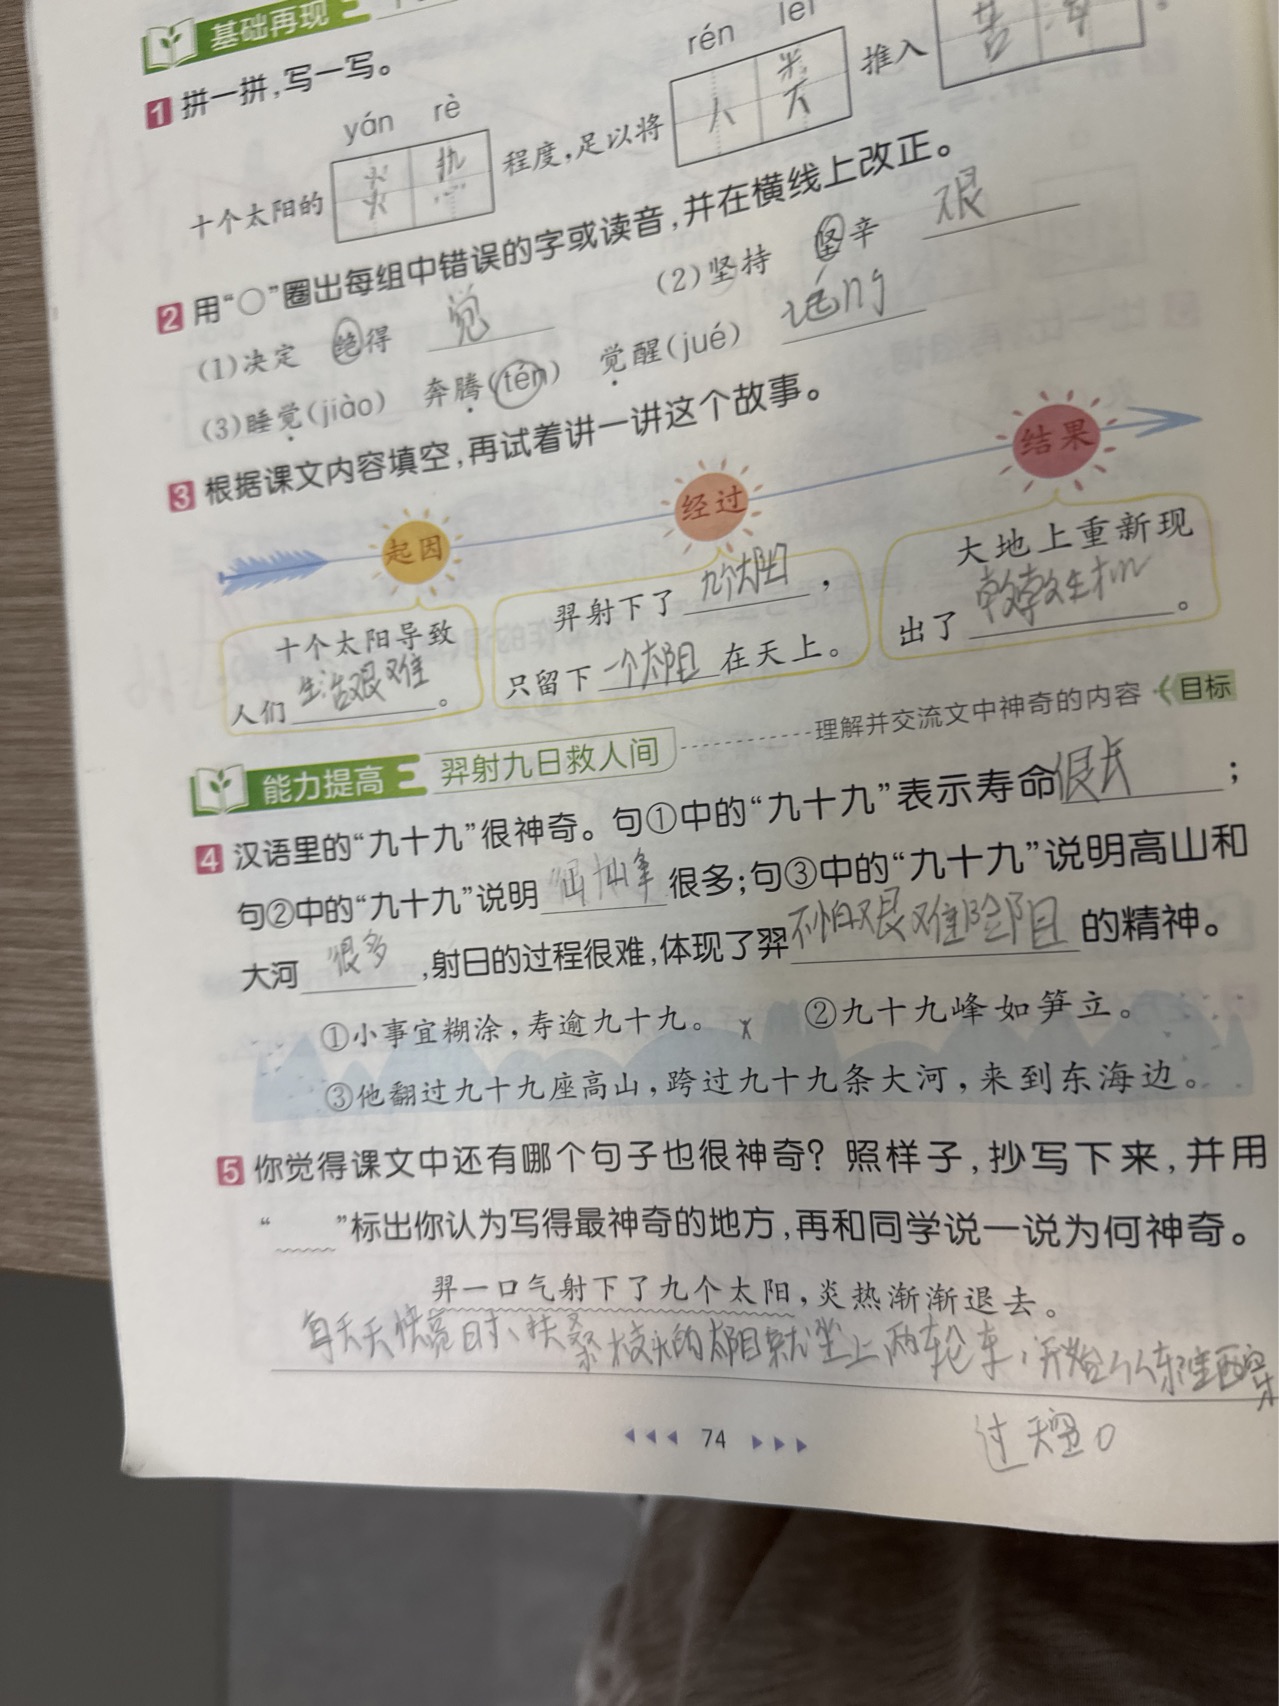 基础再现
1 拼一拼，写一写。
yán rè rén lèi
十个太阳的 炎热 程度，足以将 人类 推入 苦海 。
2 用“○”圈出每组中错误的字或读音，并在横线上改正。
(1)决定 绝得 觉 (2)坚持 坚辛 艰
(3)睡觉(jiào) 奔腾(tén) 觉醒(jué) téng
3 根据课文内容填空，再试着讲一讲这个故事。
起因 经过 结果
十个太阳导致
人们生活艰难。
羿射下了九个太阳，
只留下一个太阳在天上。
大地上重新现
出了勃勃生机。
能力提高 羿射九日救人间 理解并交流文中神奇的内容 目标
4 汉语里的“九十九”很神奇。句①中的“九十九”表示寿命很长；
句②中的“九十九”说明山峰很多；句③中的“九十九”说明高山和
大河很多，射日的过程很难，体现了羿不怕艰难险阻的精神。
①小事宜糊涂，寿逾九十九。 ②九十九峰如笋立。
③他翻过九十九座高山，跨过九十九条大河，来到东海边。
5 你觉得课文中还有哪个句子也很神奇？照样子，抄写下来，并用
“ ”标出你认为写得最神奇的地方，再和同学说一说为何神奇。
羿一口气射下了九个太阳，炎热渐渐退去。
每天天快亮时、扶桑枝头的太阳就坐上两轮车，开始从东往西穿
过天空。
74